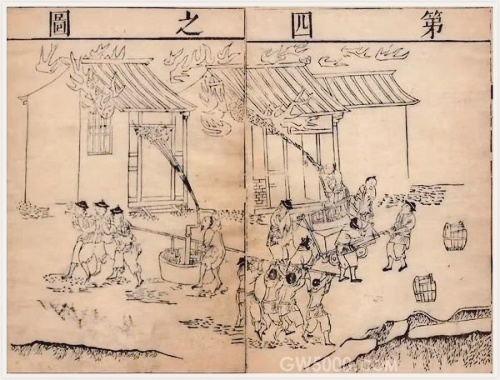 第四之圖
GW5000.COM